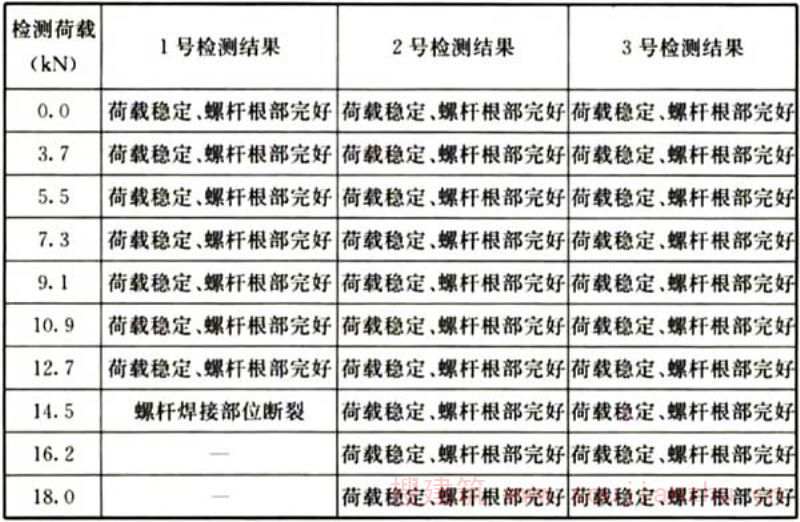 检测荷载
（kN） 1号检测结果 2号检测结果 3号检测结果
0.0 荷载稳定、螺杆根部完好 荷载稳定、螺杆根部完好 荷载稳定、螺杆根部完好
3.7 荷载稳定、螺杆根部完好 荷载稳定、螺杆根部完好 荷载稳定、螺杆根部完好
5.5 荷载稳定、螺杆根部完好 荷载稳定、螺杆根部完好 荷载稳定、螺杆根部完好
7.3 荷载稳定、螺杆根部完好 荷载稳定、螺杆根部完好 荷载稳定、螺杆根部完好
9.1 荷载稳定、螺杆根部完好 荷载稳定、螺杆根部完好 荷载稳定、螺杆根部完好
10.9 荷载稳定、螺杆根部完好 荷载稳定、螺杆根部完好 荷载稳定、螺杆根部完好
12.7 荷载稳定、螺杆根部完好 荷载稳定、螺杆根部完好 荷载稳定、螺杆根部完好
14.5 螺杆焊接部位断裂 荷载稳定、螺杆根部完好 荷载稳定、螺杆根部完好
16.2 — 荷载稳定、螺杆根部完好 荷载稳定、螺杆根部完好
18.0 — 荷载稳定、螺杆根部完好 荷载稳定、螺杆根部完好